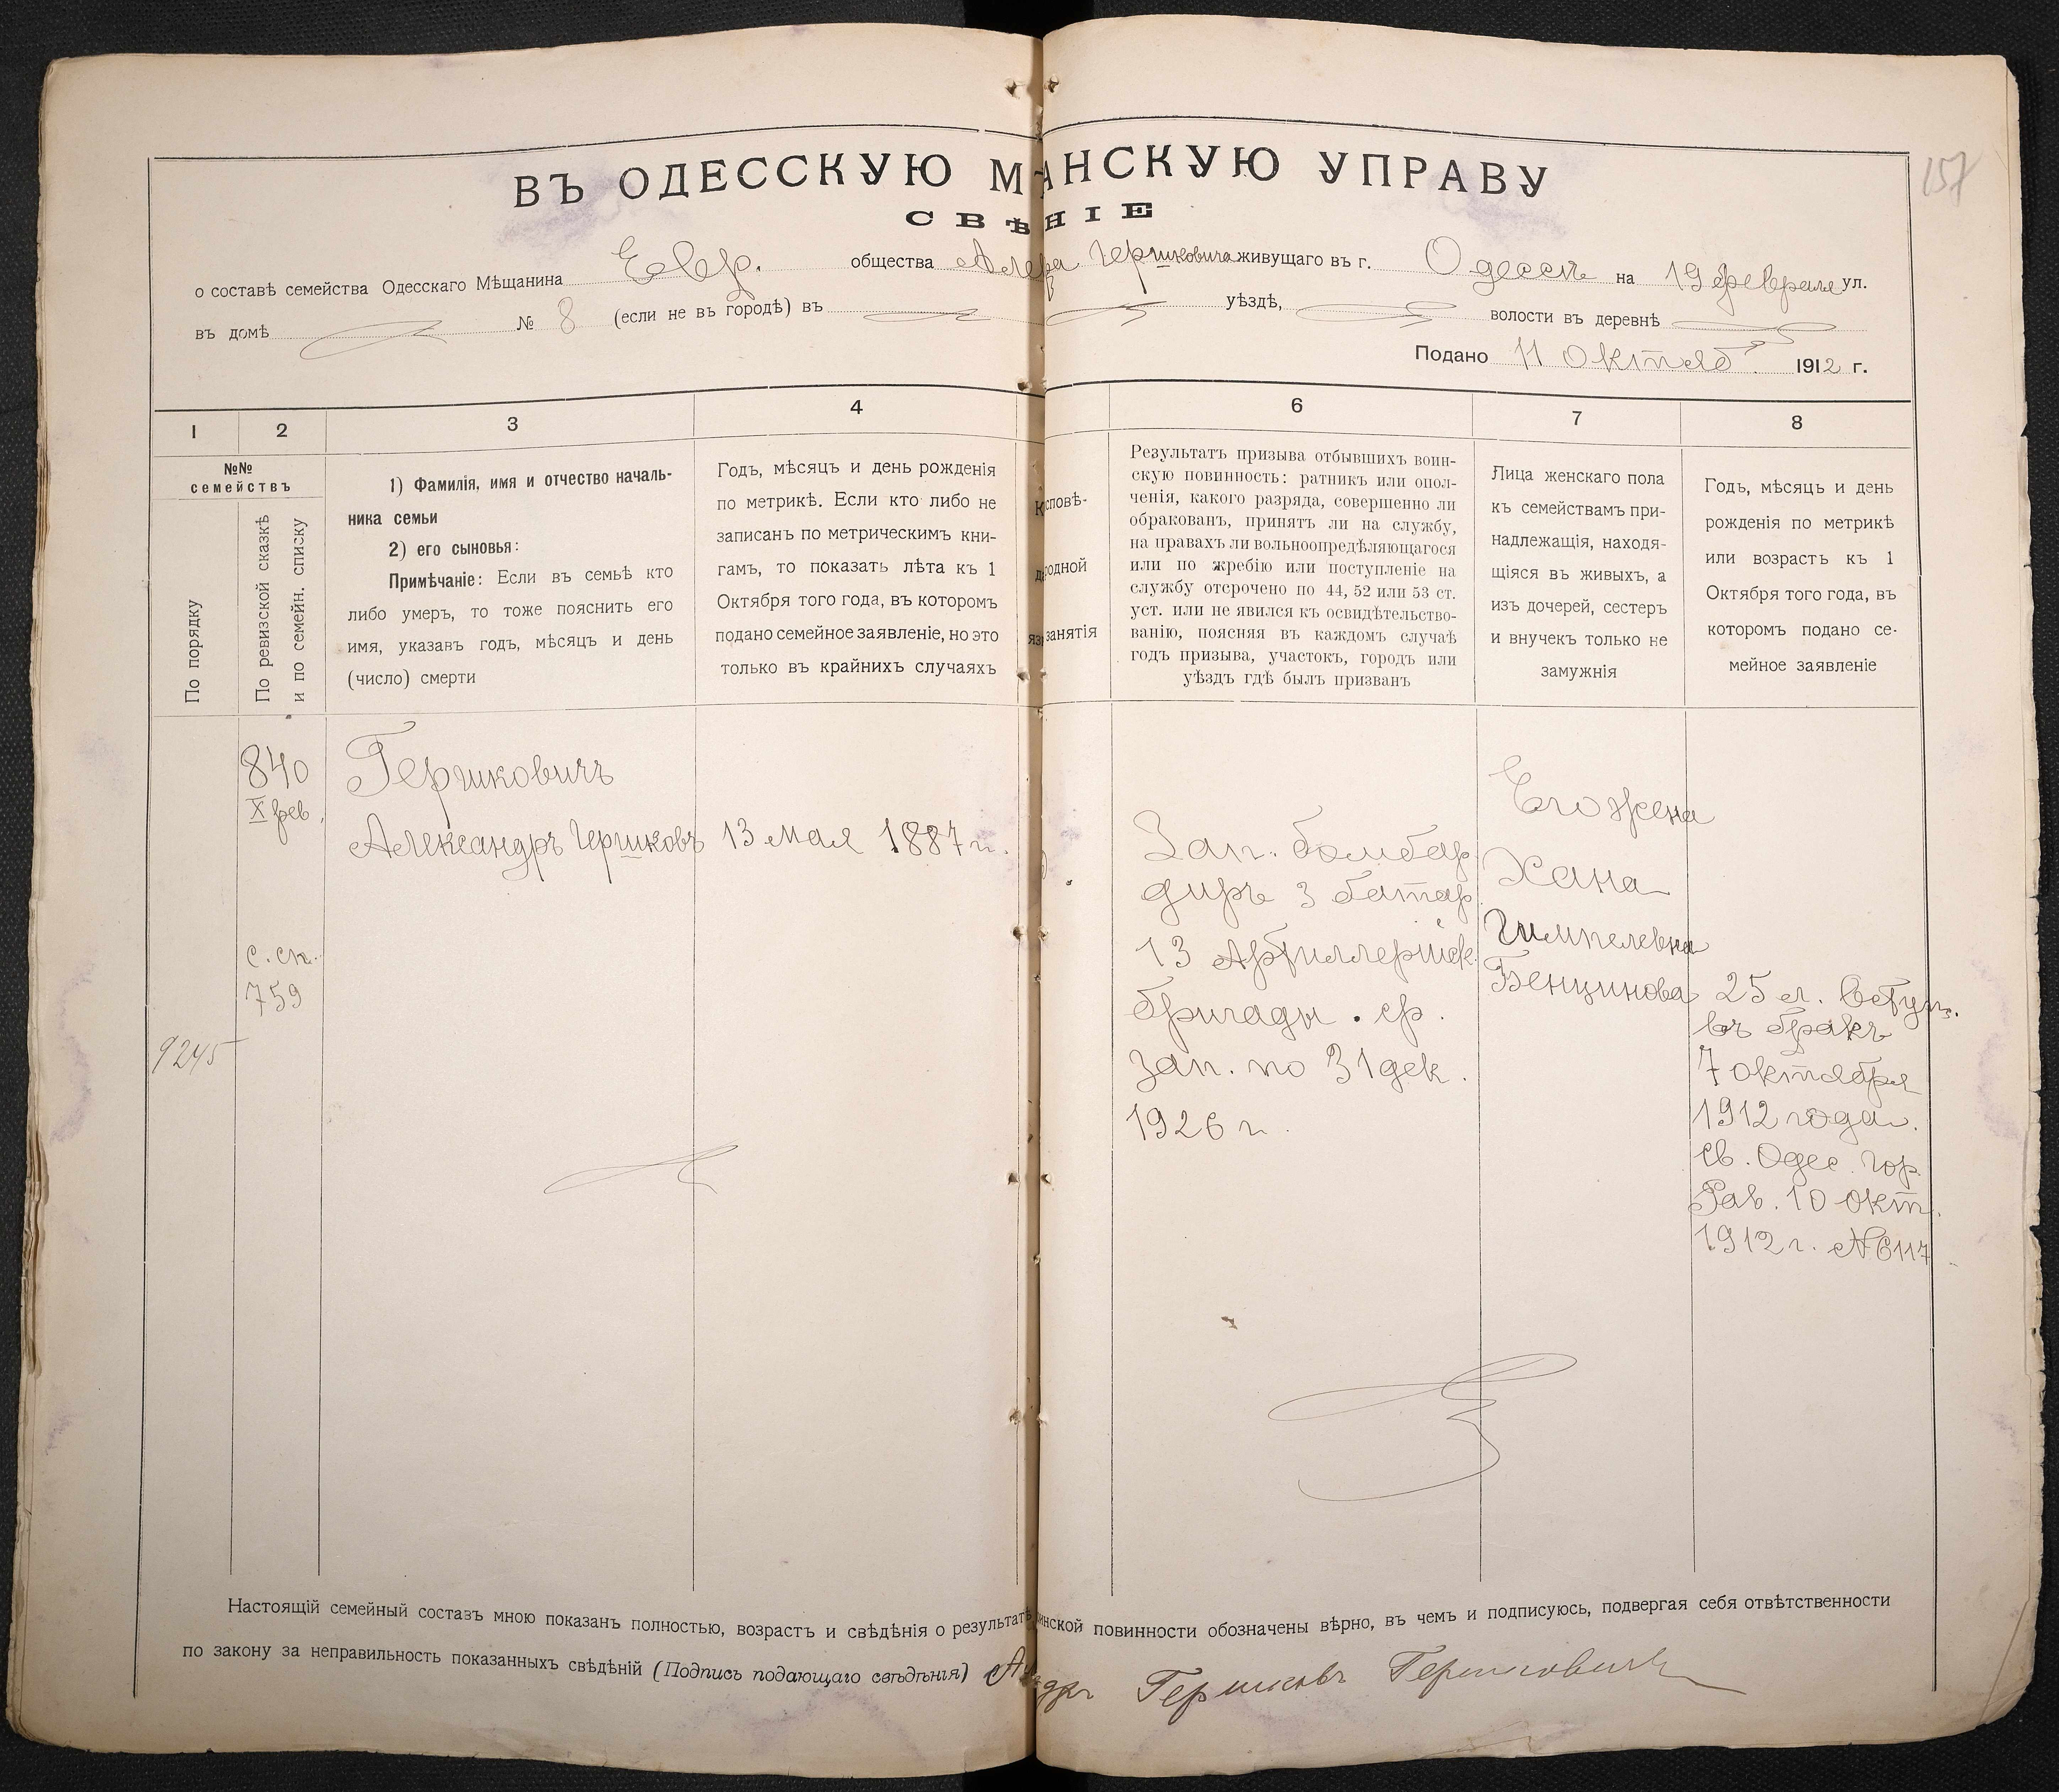 157
ВЪ ОДЕССКУЮ М АНСКУЮ УПРАВУ
СВѢ НІЕ
о составѣ семейства Одесскаго Мѣщанина Евр. общества Герш­ковича живущаго въ г. Одессѣ на 19 февраля ул.
въ домѣ № 8 (если не въ городѣ) въ уѣздѣ, волости въ деревнѣ
Подано 11 Октяб. 1912 г.
1 2 3 4 6 7 8
№№
семействъ
По порядку
По ревизской сказкѣ
и по семейн. списку
1) Фамилія, имя и отчество началь-
ника семьи
2) его сыновья:
Примѣчаніе: Если въ семьѣ кто
либо умеръ, то тоже пояснить его
имя, указавъ годъ, мѣсяцъ и день
(число) смерти
Годъ, мѣсяцъ и день рожденія
по метрикѣ. Если кто либо не
записанъ по метрическимъ кни-
гамъ, то показать лѣта къ 1
Октября того года, въ которомъ
подано семейное заявленіе, но это
только въ крайнихъ случаяхъ
сповѣ-
родной
занятія
Результатъ призыва отбывшихъ воин-
скую повинность: ратникъ или опол-
ченія, какого разряда, совершенно ли
обракованъ, принятъ ли на службу,
на правахъ ли вольноопредѣляющагося
или по жребію или поступленіе на
службу отсрочено по 44, 52 или 53 ст.
уст. или не явился къ освидѣтельство-
ванію, поясняя въ каждомъ случаѣ
годъ призыва, участокъ, городъ или
уѣздъ гдѣ былъ призванъ
Лица женскаго пола
къ семействамъ при-
надлежащія, находя-
щіяся въ живыхъ, а
изъ дочерей, сестеръ
и внучекъ только не
замужнія
Годъ, мѣсяцъ и день
рожденія по метрикѣ
или возрасть къ 1
Октября того года, въ
которомъ подано се-
мейное заявленіе
840
X рев.
с. сп.
759
9245
Гершковичъ
Александръ Гершковъ
13 мая 1887 г.
Зап. бомбар
диръ 3 батар
13 Артиллерійск.
бригады. ср.
зап. по 31 дек.
1926 г.
Его жена
Хана
Гимпелевна
Бенцинова
25 л. Вступ.
въ бракъ
7 октября
1912 года.
св. Одес. гор.
Рав. 10 окт.
1912 г. № 6117
Настоящій семейный составъ мною показанъ полностью, возрастъ и свѣдѣнія о результатѣ инской повинности обозначены вѣрно, въ чемъ и подписуюсь, подвергая себя отвѣтственности
по закону за неправильность показанныхъ свѣдѣній (Подпись подающаго свѣдѣнія) Гершковъ Гершковичъ